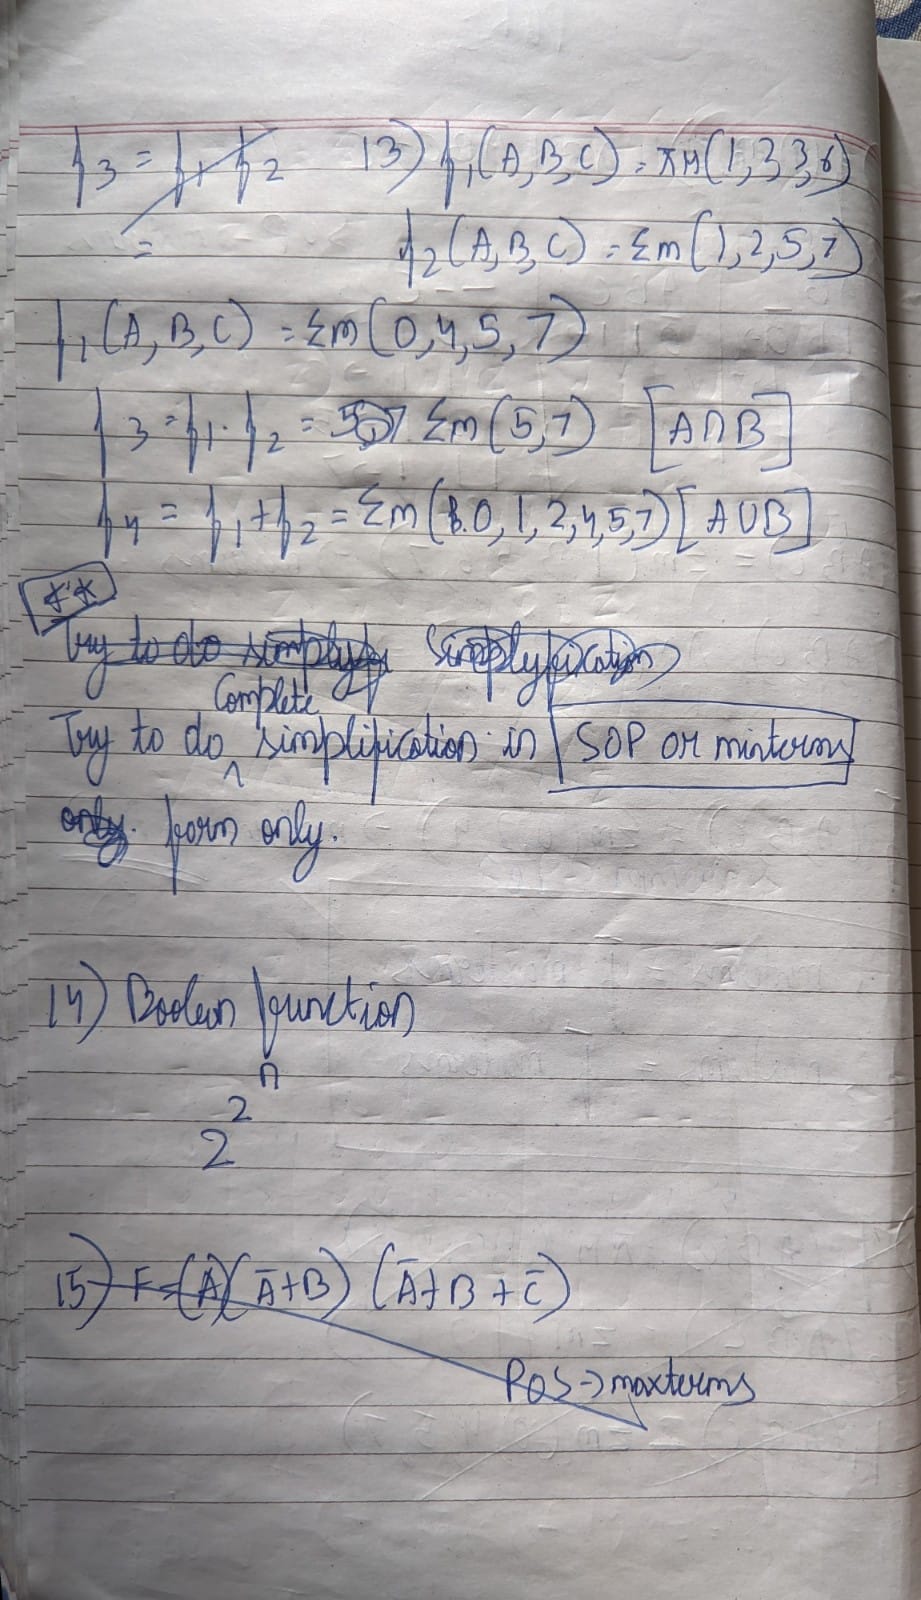 f3 = f1 f2 13) f1(A, B, C) = πM(1, 2, 3, 6)
= f2(A, B, C) = Σm(1, 2, 5, 7)
f1(A, B, C) = Σm(0, 4, 5, 7)
f3 = f1 · f2 = Σm(5, 7) [A∩B]
f4 = f1 + f2 = Σm(0, 1, 2, 4, 5, 7) [A∪B]
**
Try to do simplyf Simplyfication
Complete
Try to do ^ simplification in SOP or minterms
only. form only.
14) Boolean function
2^2^n
15) F = (A)(Ā+B) (Ā+B+C̄)
POS → maxterms